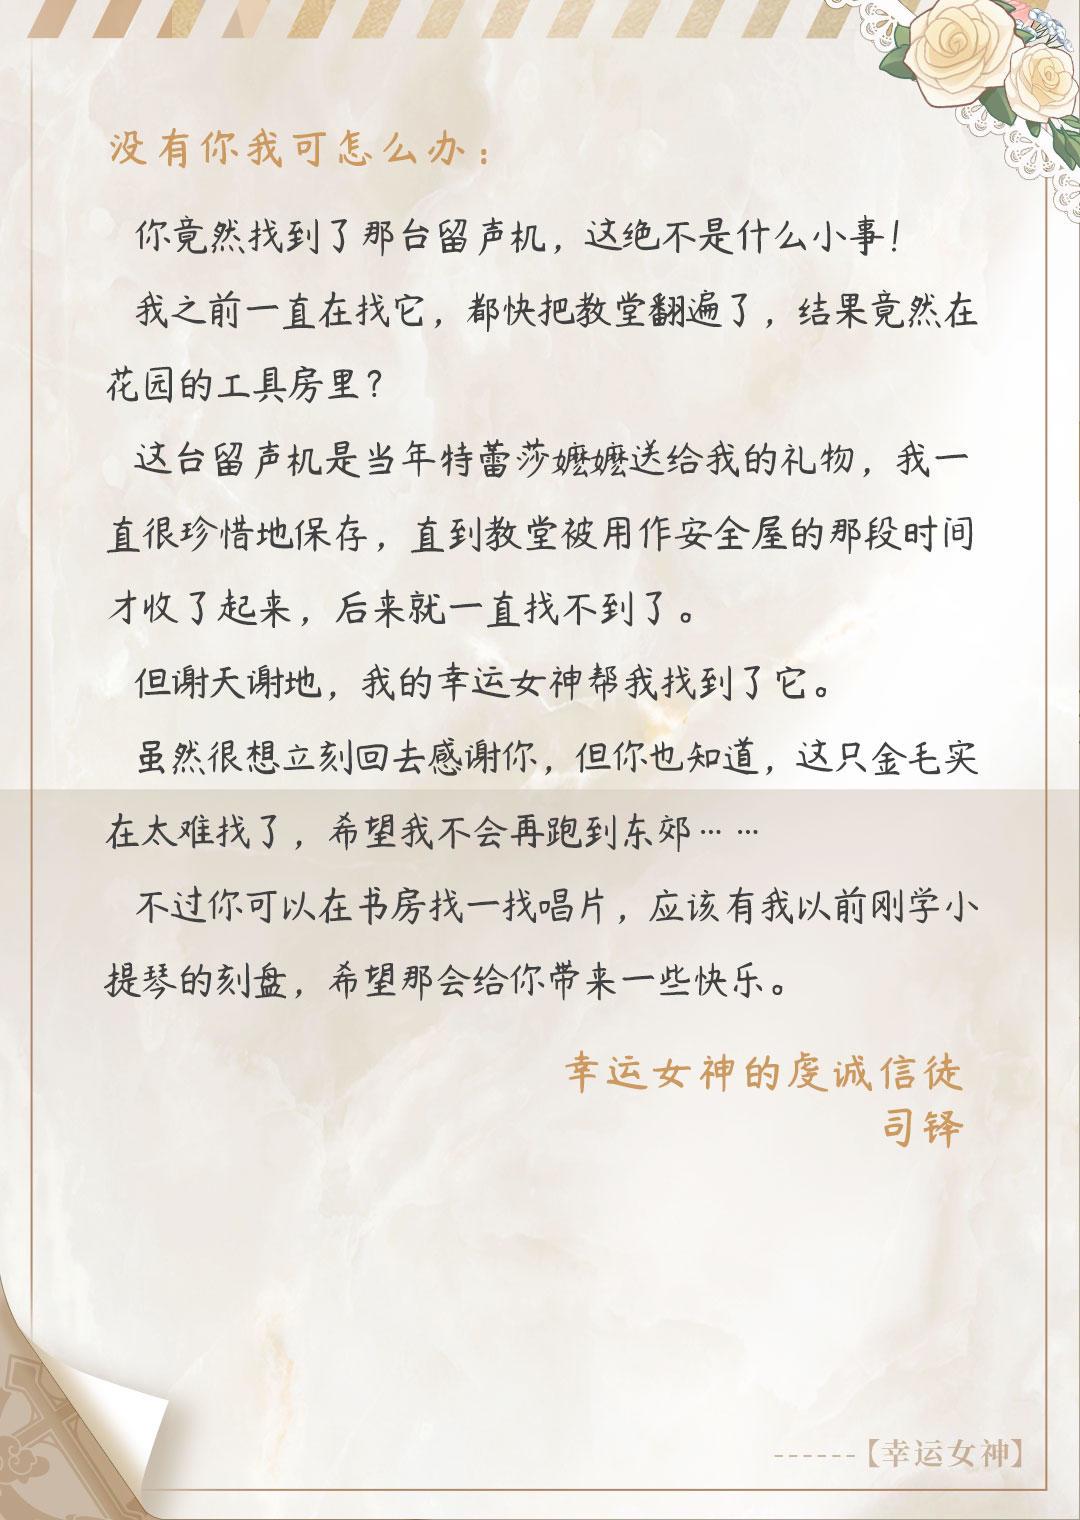 没有你我可怎么办：
你竟然找到了那台留声机，这绝不是什么小事！
我之前一直在找它，都快把教堂翻遍了，结果竟然在
花园的工具房里？
这台留声机是当年特蕾莎嬷嬷送给我的礼物，我一
直很珍惜地保存，直到教堂被用作安全屋的那段时间
才收了起来，后来就一直找不到了。
但谢天谢地，我的幸运女神帮我找到了它。
虽然很想立刻回去感谢你，但你也知道，这只金毛实
在太难找了，希望我不会再跑到东郊……
不过你可以在书房找一找唱片，应该有我以前刚学小
提琴的刻盘，希望那会给你带来一些快乐。
幸运女神的虔诚信徒
司铎
------【幸运女神】